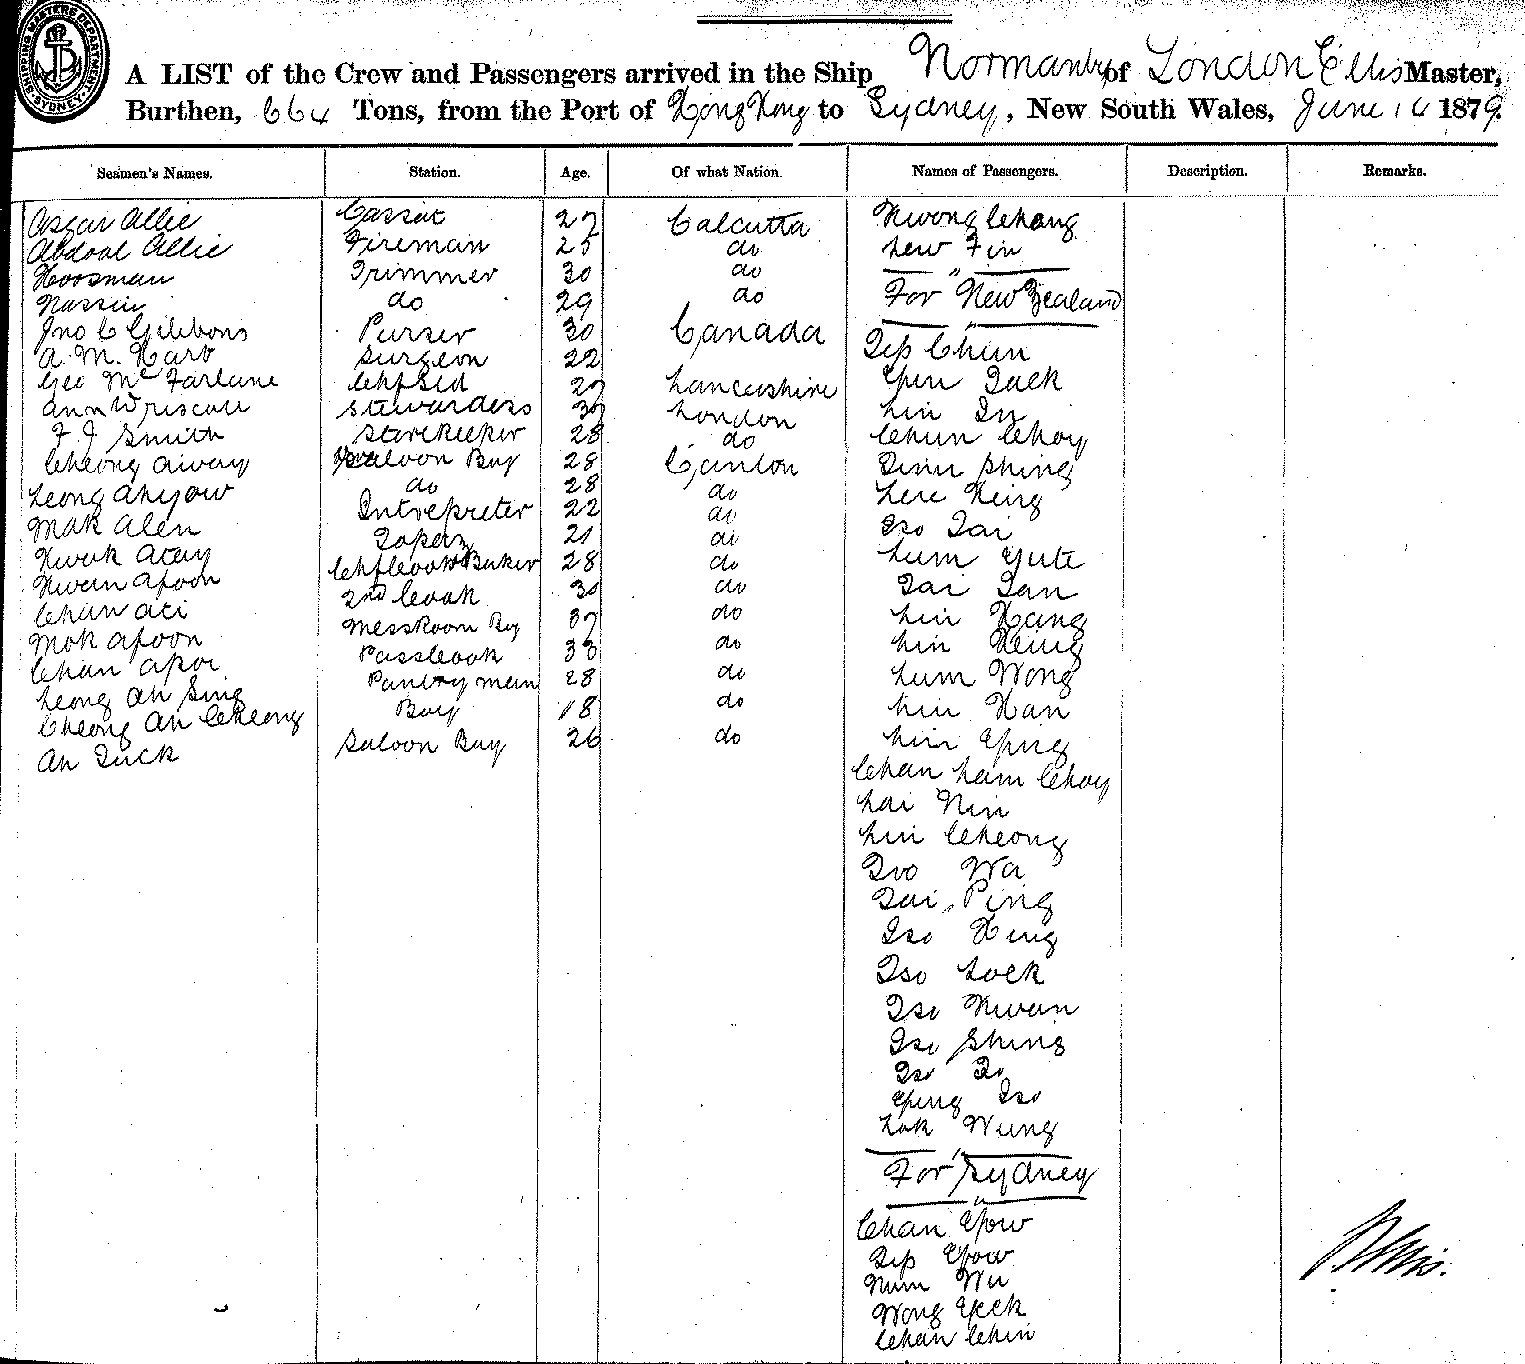 SHIPPING MASTERS DEPARTMENT SYDNEY
A LIST of the Crew and Passengers arrived in the Ship Normanby of London Ellis Master,
Burthen, 664 Tons, from the Port of Hong Kong to Sydney, New South Wales, June 16 1879.
Seamen's Names. Station. Age. Of what Nation. Names of Passengers. Description. Remarks.
Asgar Allie 27 Calcutta Kwong Cheong
Abdool Allie Fireman 25 do Lew Fin
Hoosman Trimmer 30 do
Nassin do 29 do For New Zealand
Jno C Gibbons Purser 30 Canada
A. M. Surgeon 22 Yip Chun
Geo McFarlane Chf Std 27 Lancashire Yun Tack
Ann Stewardess London Lin
F. J. Smith Storekeeper 28 do Chun Choy
Cheong Saloon Boy 28 Canton Shing
Leong Ahyow do 28 do
Mak Alen Intrepreter 22 do Tso Tai
Kwok 21 do Lum Yute
Kwan Apoon Chf Cook & Baker 28 do Tai Tan
Chan 2nd Cook 30 do Lin
Mok Apoon Messroom Boy 37 do Lin
Chan Apoi Pass Cook 33 do Lum Wong
Leong Ah Sing Pantry man 28 do Lin Kan
Cheong Ah Cheong Boy 18 do Lin
Ah Tuck Saloon Boy 26 do Chan Lam Choy
Lai Nin
Lin Cheong
Wa
Tai Ping
Tso
Tso Lock
Tso Kwan
Tso Shing
Tso To
Tso
Lok Wung
For Sydney
Chan Yow
Yip Yow
Num Wu
Wong Yeck
Chan Chin
Ellis.